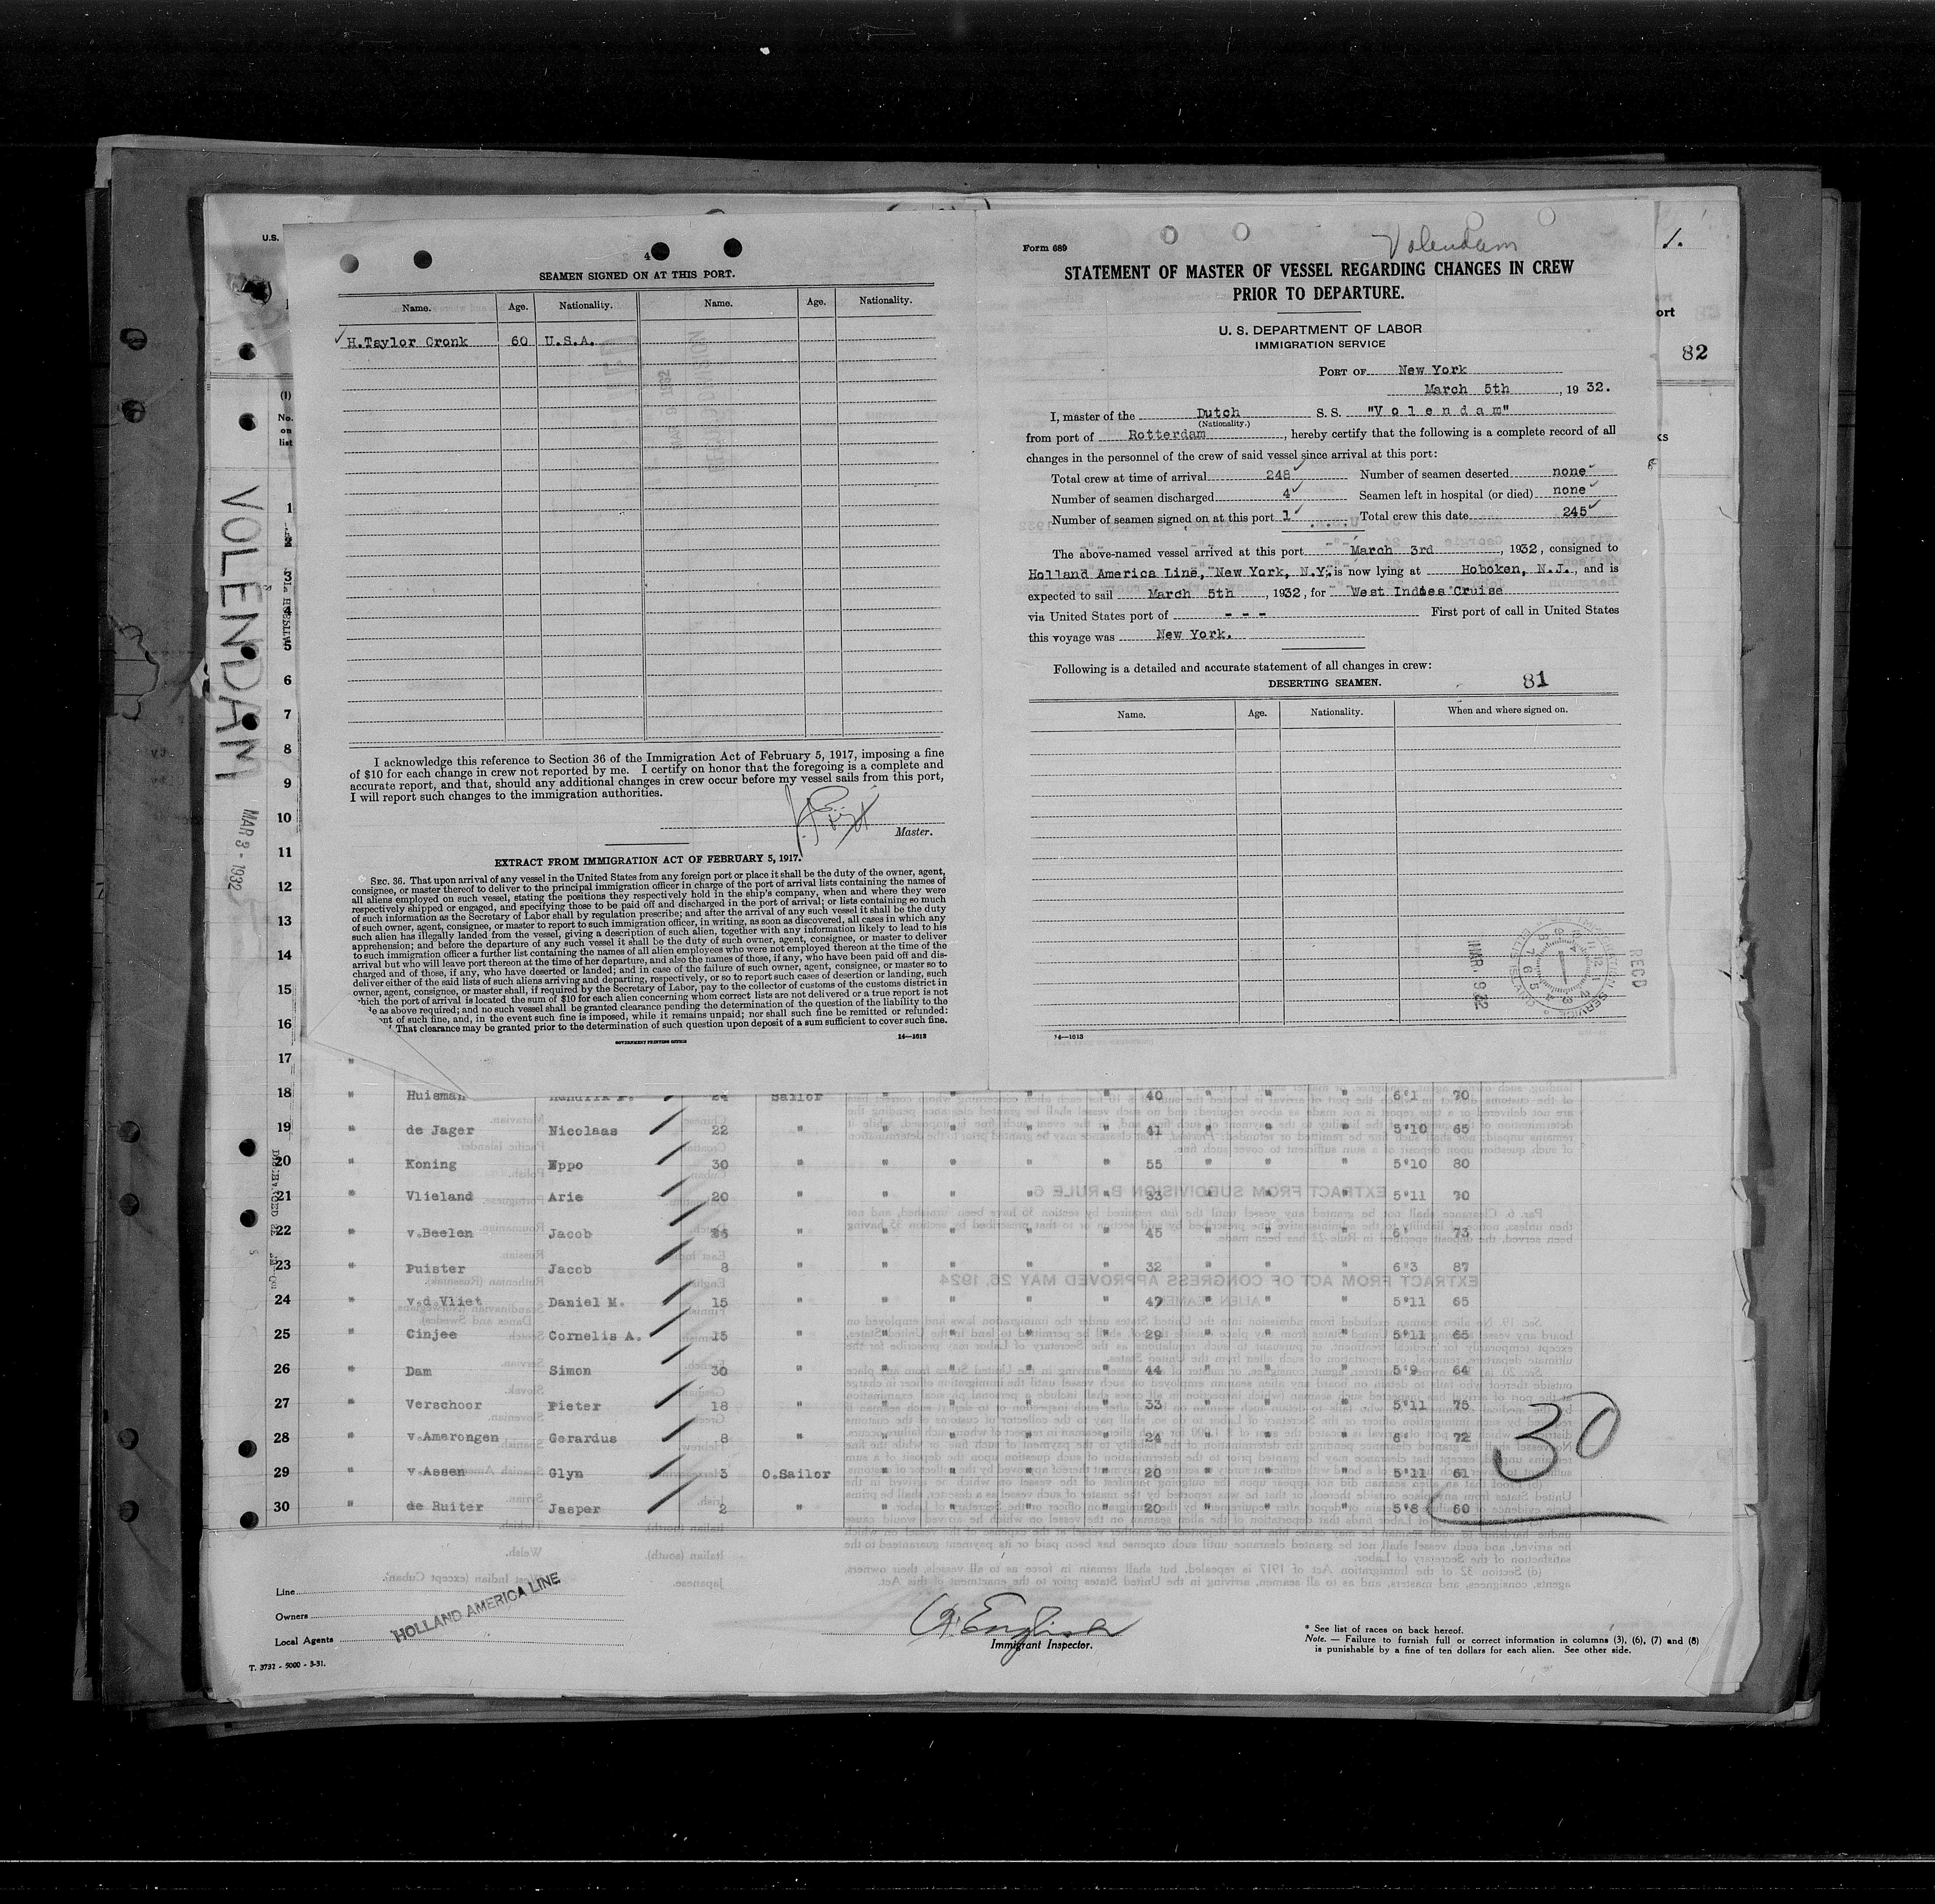 4
SEAMEN SIGNED ON AT THIS PORT.
Name. Age. Nationality. Name. Age. Nationality.
H.Taylor Cronk 60 U.S.A.
I acknowledge this reference to Section 36 of the Immigration Act of February 5, 1917, imposing a fine
of $10 for each change in crew not reported by me. I certify on honor that the foregoing is a complete and
accurate report, and that, should any additional changes in crew occur before my vessel sails from this port,
I will report such changes to the immigration authorities.
Master.
EXTRACT FROM IMMIGRATION ACT OF FEBRUARY 5, 1917.
SEC. 36. That upon arrival of any vessel in the United States from any foreign port or place it shall be the duty of the owner, agent,
consignee, or master thereof to deliver to the principal immigration officer in charge of the port of arrival lists containing the names of
all aliens employed on such vessel, stating the positions they respectively hold in the ship's company, when and where they were
respectively shipped or engaged, and specifying those to be paid off and discharged in the port of arrival; or lists containing so much
of such information as the Secretary of Labor shall by regulation prescribe; and after the arrival of any such vessel it shall be the duty
of such owner, agent, consignee, or master to report to such immigration officer, in writing, as soon as discovered, all cases in which any
such alien has illegally landed from the vessel, giving a description of such alien, together with any information likely to lead to his
apprehension; and before the departure of any such vessel it shall be the duty of such owner, agent, consignee, or master to deliver
to such immigration officer a further list containing the names of all alien employees who were not employed thereon at the time of the
arrival but who will leave port thereon at the time of her departure, and also the names of those, if any, who have been paid off and dis-
charged and of those, if any, who have deserted or landed; and in case of the failure of such owner, agent, consignee, or master so to
deliver either of the said lists of such aliens arriving and departing, respectively, or so to report such cases of desertion or landing, such
owner, agent, consignee, or master, shall, if required by the Secretary of Labor, pay to the collector of customs of the customs district in
which the port of arrival is located the sum of $10 for each alien concerning whom correct lists are not delivered or a true report is not
as above required; and no such vessel shall be granted clearance pending the determination of the question of the liability to the
of such fine, and, in the event such fine is imposed, while it remains unpaid; nor shall such fine be remitted or refunded:
That clearance may be granted prior to the determination of such question upon deposit of a sum sufficient to cover such fine.
GOVERNMENT PRINTING OFFICE 14—1613
Form 689
Volendam
STATEMENT OF MASTER OF VESSEL REGARDING CHANGES IN CREW
PRIOR TO DEPARTURE.
U. S. DEPARTMENT OF LABOR
IMMIGRATION SERVICE
PORT OF New York
March 5th, 1932.
I, master of the Dutch S.S. "Volendam"
(Nationality.)
from port of Rotterdam, hereby certify that the following is a complete record of all
changes in the personnel of the crew of said vessel since arrival at this port:
Total crew at time of arrival 248 Number of seamen deserted none
Number of seamen discharged 4 Seamen left in hospital (or died) none
Number of seamen signed on at this port 1 Total crew this date 245
The above-named vessel arrived at this port March 3rd, 1932, consigned to
Holland America Line, New York, N.Y. is now lying at Hoboken, N.J., and is
expected to sail March 5th, 1932, for West Indies Cruise
via United States port of - - - First port of call in United States
this voyage was New York.
Following is a detailed and accurate statement of all changes in crew:
DESERTING SEAMEN. 81
Name. Age. Nationality. When and where signed on.
MAR. 9 32
RECD
14—1613
U.S.
1.
ort
82
ks
(1)
No.
on
list
VOLENDAM
MAR 3 - 1932
1
2
3
4
5
6
7
8
9
10
11
12
13
14
15
16
17 "
18 " Huisman 24 Sailor " " " " 40 " " " 6'1 70
19 " de Jager Nicolaas 22 " " " " " 41 " " " 5'10 65
20 " Koning Eppo 30 " " " " " 55 " " " 5'10 80
21 " Vlieland Arie 20 " " " " " 33 " " " 5'11 70
22 " v.Beelen Jacob " " " " " 45 " " " 6' 73
23 " Puister Jacob 8 " " " " " 32 " " " 6'3 87
24 " v.d.Vliet Daniel M. 15 " " " " " 47 " " " 5'11 65
25 " Cinjee Cornelis A. 15 " " " " " 29 " " " 5'11 65
26 " Dam Simon 30 " " " " " 44 " " " 5'9 64
27 " Verschoor Pieter 18 " " " " " 33 " " " 5'11 75
28 " v.Amerongen Gerardus 8 " " " " " 24 " " " 6' 72
29 " v.Assen Glyn 3 O.Sailor " " " " 20 " " " 5'11 61
30 " de Ruiter Jasper 2 " " " " " 20 " " " 5'8 60
30
Line
Owners
Local Agents
HOLLAND AMERICA LINE
T. 3737 - 5000 - 3-31.
English
Immigrant Inspector.
* See list of races on back hereof.
Note. — Failure to furnish full or correct information in columns (3), (6), (7) and (8)
is punishable by a fine of ten dollars for each alien. See other side.